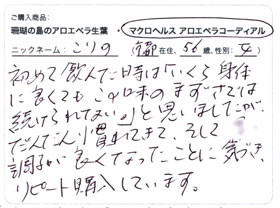 ご購入商品:
珊瑚の島のアロエベラ生葉 ・ マクロヘルス アロエベラコーディアル
ニックネーム: こりの (京都在住、56歳、性別: 女)
初めて飲んだ時は「いくら身体
に良くてもこの味のまずさでは
続けられない。」と思いましたが、
だんだんり慣れてきて、そして
調子が良くなったことに気づき、
リピート購入しています。